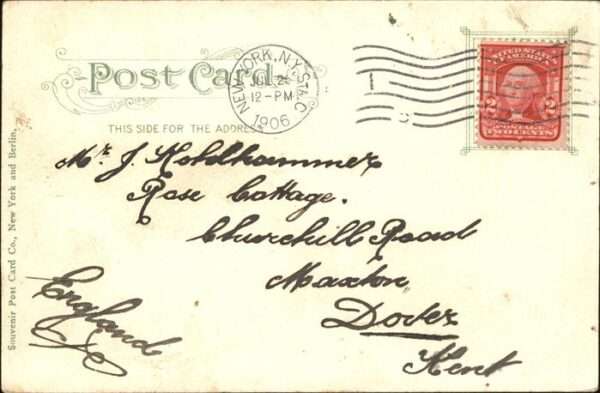 Post Card.
THIS SIDE FOR THE ADDRESS
NEW YORK, N.Y. STA. C
12-PM
1906
1
UNITED STATES OF AMERICA
2 2
POSTAGE
TWO CENTS
Mr. J. Kohlhammer
Rose Cottage.
Churchill Road
Maxton
Dover
Kent
England
Souvenir Post Card Co., New York and Berlin.